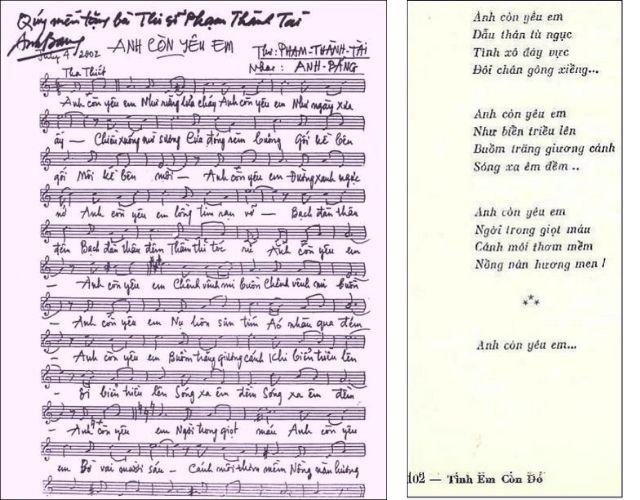 Quý mến tặng bà Thi sĩ Phạm Thành Tài
Anh Bằng
July 4 2002
ANH CÒN YÊU EM
Thơ: PHẠM-THÀNH-TÀI
Nhạc: ANH-BẰNG
Tha Thiết
Anh còn yêu em Như rừng lửa cháy Anh còn yêu em Như ngày xưa
ấy — Chiều xuống mù sương Cửa đóng rèm buông Gối kề bên
gối Môi kề bên môi — Anh còn yêu em Đường xanh ngọc
nở Anh còn yêu em lòng tin rạn vỡ — Bạch đàn thâu
đêm Bạch đàn thâu đêm Thầm thì tóc rũ Anh còn yêu em
— Anh còn yêu em Chênh vênh mi buồn Chênh vênh mi buồn
— Anh còn yêu em Nụ hôn sim tím Áo nhầu qua đêm
— Anh còn yêu em Buồm trăng giương cánh Khi biển triều lên
— biển triều lên Sóng xa êm đềm Sóng xa êm đềm
— Anh còn yêu em Ngời trong giọt máu Anh còn yêu
em Bờ vai mười sáu — Cánh môi thơm mềm Nồng nàn hương
Anh còn yêu em
Dẫu thân tù ngục
Tình xô đáy vực
Đôi chân gông xiềng...
Anh còn yêu em
Như biển triều lên
Buồm trăng giương cánh
Sóng xa êm đềm ..
Anh còn yêu em
Ngời trong giọt máu
Cánh môi thơm mềm
Nồng nàn hương men !
***
Anh còn yêu em...
102 — Tình Em Còn Đó